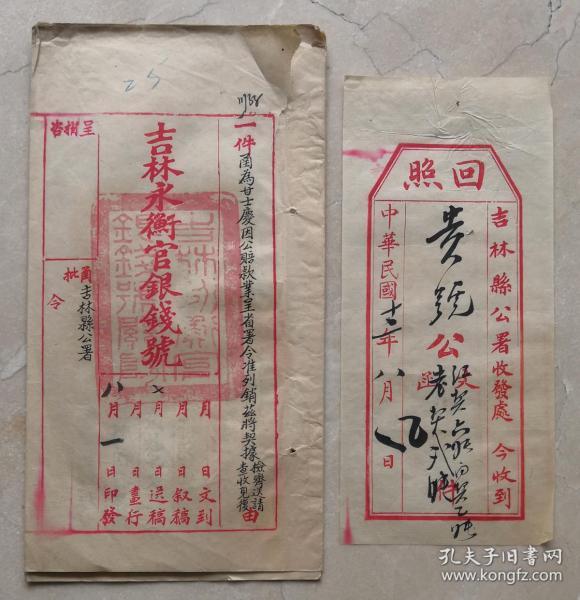 25
一件
函為甘士慶因公賠款業呈省署令准列銷茲將契據檢齊送請查收見復
由
吉林永衡官銀錢號
月 日文到
月 日叙稿
月 日送稿
月 日畫行
八月一日印發
呈
咨
函吉林縣公署
批
令
回照
吉林縣公署收發處 今收到
貴號公
中華民國十二年八月 日
孔夫子旧书网
book.kongfz.com